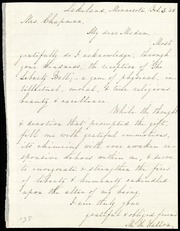 Lakeland, Minnesota, Feb 3.
Mrs Chapman,
My dear Madam,
Most
gratefully do I acknowledge, through
your kindness, the reception of the
Liberty Bell; a gem of physical, in-
tellectual, moral, & truly religious
beauty & excellence.
While the thought
& devotion that prompted the gift
fill me with grateful emotions,
its chiming with ever awaken re-
sponsive echoes within me, & serve
to invigorate & strengthen the fires
of liberty & humanity enkindled
upon the altar of my being.
I am truly your
grateful & obliged friend